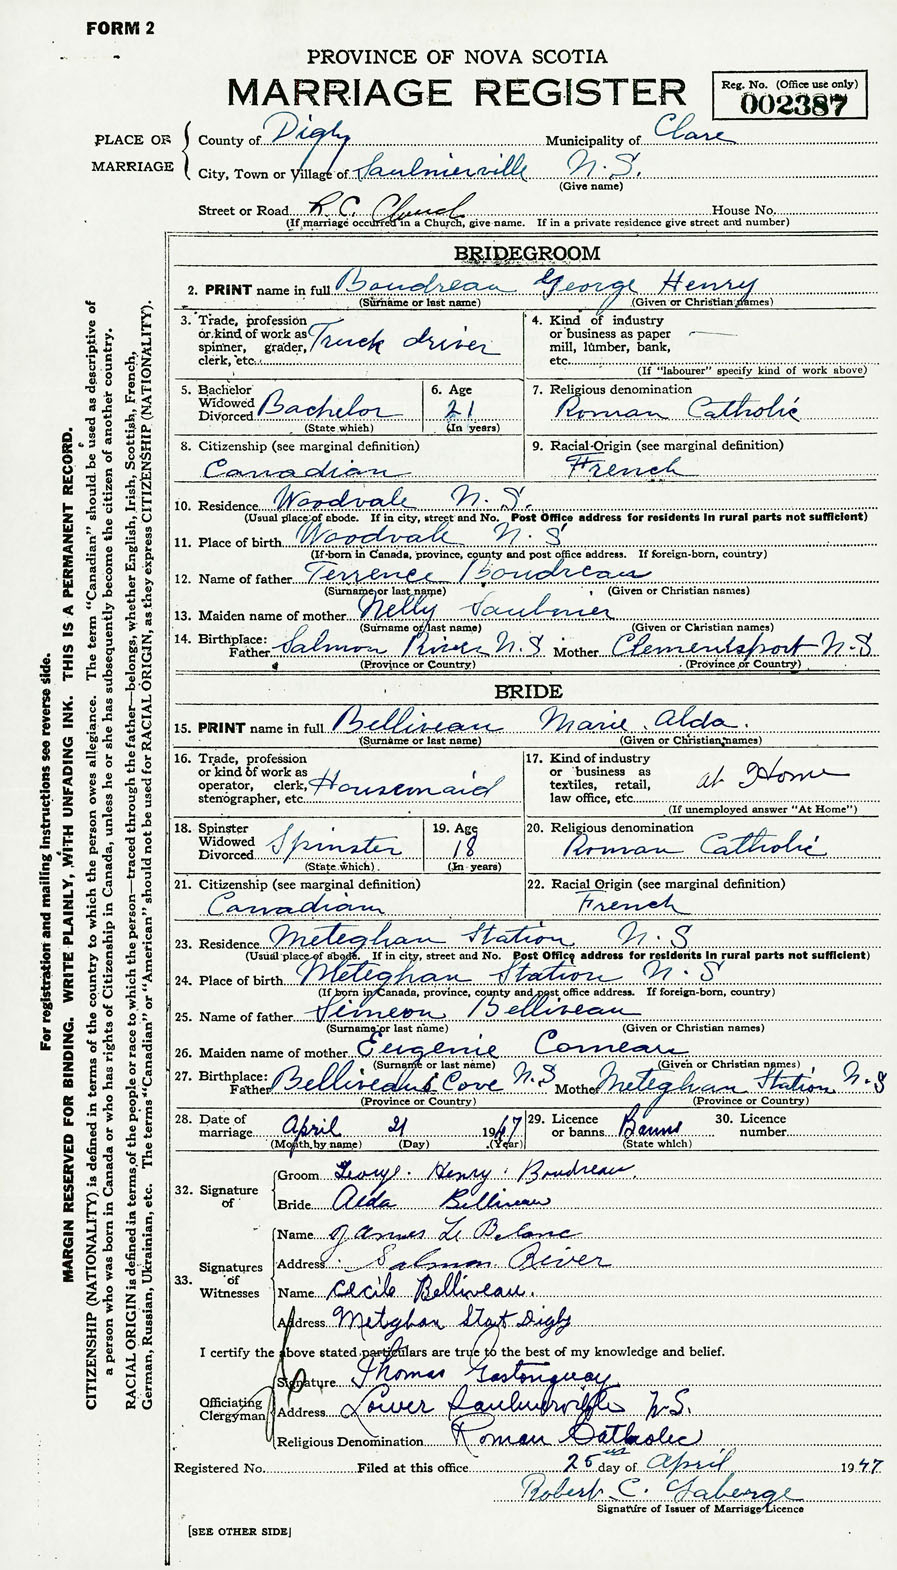 FORM 2
PROVINCE OF NOVA SCOTIA
MARRIAGE REGISTER
Reg. No. (Office use only)
002387
PLACE OF MARRIAGE
County of Digby Municipality of Clare
City, Town or Village of Saulnierville N.S.
(Give name)
Street or Road R.C. Church House No.
(If marriage occurred in a Church, give name. If in a private residence give street and number)
BRIDEGROOM
2. PRINT name in full Boudreau George Henry
(Surname or last name) (Given or Christian names)
3. Trade, profession or kind of work as spinner, grader, clerk, etc. Truck driver
4. Kind of industry or business as paper mill, lumber, bank, etc. —
(If "labourer" specify kind of work above)
5. Bachelor Widowed Divorced Bachelor
(State which)
6. Age 21
(In years)
7. Religious denomination
Roman Catholic
8. Citizenship (see marginal definition)
Canadian
9. Racial Origin (see marginal definition)
French
10. Residence Woodvale N.S.
(Usual place of abode. If in city, street and No. Post Office address for residents in rural parts not sufficient)
11. Place of birth Woodvale N.S
(If born in Canada, province, county and post office address. If foreign-born, country)
12. Name of father Terrence Boudreau
(Surname or last name) (Given or Christian names)
13. Maiden name of mother Nelly Saulnier
(Surname or last name) (Given or Christian names)
14. Birthplace: Father Salmon River N.S Mother Clementsport N-S
(Province or Country) (Province or Country)
BRIDE
15. PRINT name in full Belliveau Marie Alda.
(Surname or last name) (Given or Christian names)
16. Trade, profession or kind of work as operator, clerk, stenographer, etc. Housemaid
17. Kind of industry or business as textiles, retail, law office, etc. at Home
(If unemployed answer "At Home")
18. Spinster Widowed Divorced Spinster
(State which)
19. Age 18
(In years)
20. Religious denomination
Roman Catholic
21. Citizenship (see marginal definition)
Canadian
22. Racial Origin (see marginal definition)
French
23. Residence Meteghan Station N.S
(Usual place of abode. If in city, street and No. Post Office address for residents in rural parts not sufficient)
24. Place of birth Meteghan Station N.S
(If born in Canada, province, county and post office address. If foreign-born, country)
25. Name of father Simeon Belliveau
(Surname or last name) (Given or Christian names)
26. Maiden name of mother Eugenie Comeau
(Surname or last name) (Given or Christian names)
27. Birthplace: Father Belliveaus Cove N.S Mother Meteghan Station N-S
(Province or Country) (Province or Country)
28. Date of marriage April 21 1947
(Month by name) (Day) (Year)
29. Licence or banns Banns
(State which)
30. Licence number
32. Signature of
Groom George Henry Boudreau
Bride Alda Belliveau
33. Signatures of Witnesses
Name James Le Blanc
Address Salmon River
Name Cecile Belliveau.
Address Metghan Stat Digby
I certify the above stated particulars are true to the best of my knowledge and belief.
Officiating Clergyman
Signature Thomas Gastonguay
Address Lower Saulnierville N.S.
Religious Denomination Roman Catholic
Registered No. Filed at this office 25 day of April 1947
Robert C. Laberge
Signature of Issuer of Marriage Licence
[SEE OTHER SIDE]
For registration and mailing instructions see reverse side.
MARGIN RESERVED FOR BINDING. WRITE PLAINLY, WITH UNFADING INK. THIS IS A PERMANENT RECORD.
CITIZENSHIP (NATIONALITY) is defined in terms of the country to which the person owes allegiance. The term "Canadian" should be used as descriptive of
a person who was born in Canada or who has rights of Citizenship in Canada, unless he or she has subsequently become the citizen of another country.
RACIAL ORIGIN is defined in terms of the people or race to which the person—traced through the father—belongs, whether English, Irish, Scottish, French,
German, Russian, Ukrainian, etc. The terms "Canadian" or "American" should not be used for RACIAL ORIGIN, as they express CITIZENSHIP (NATIONALITY).